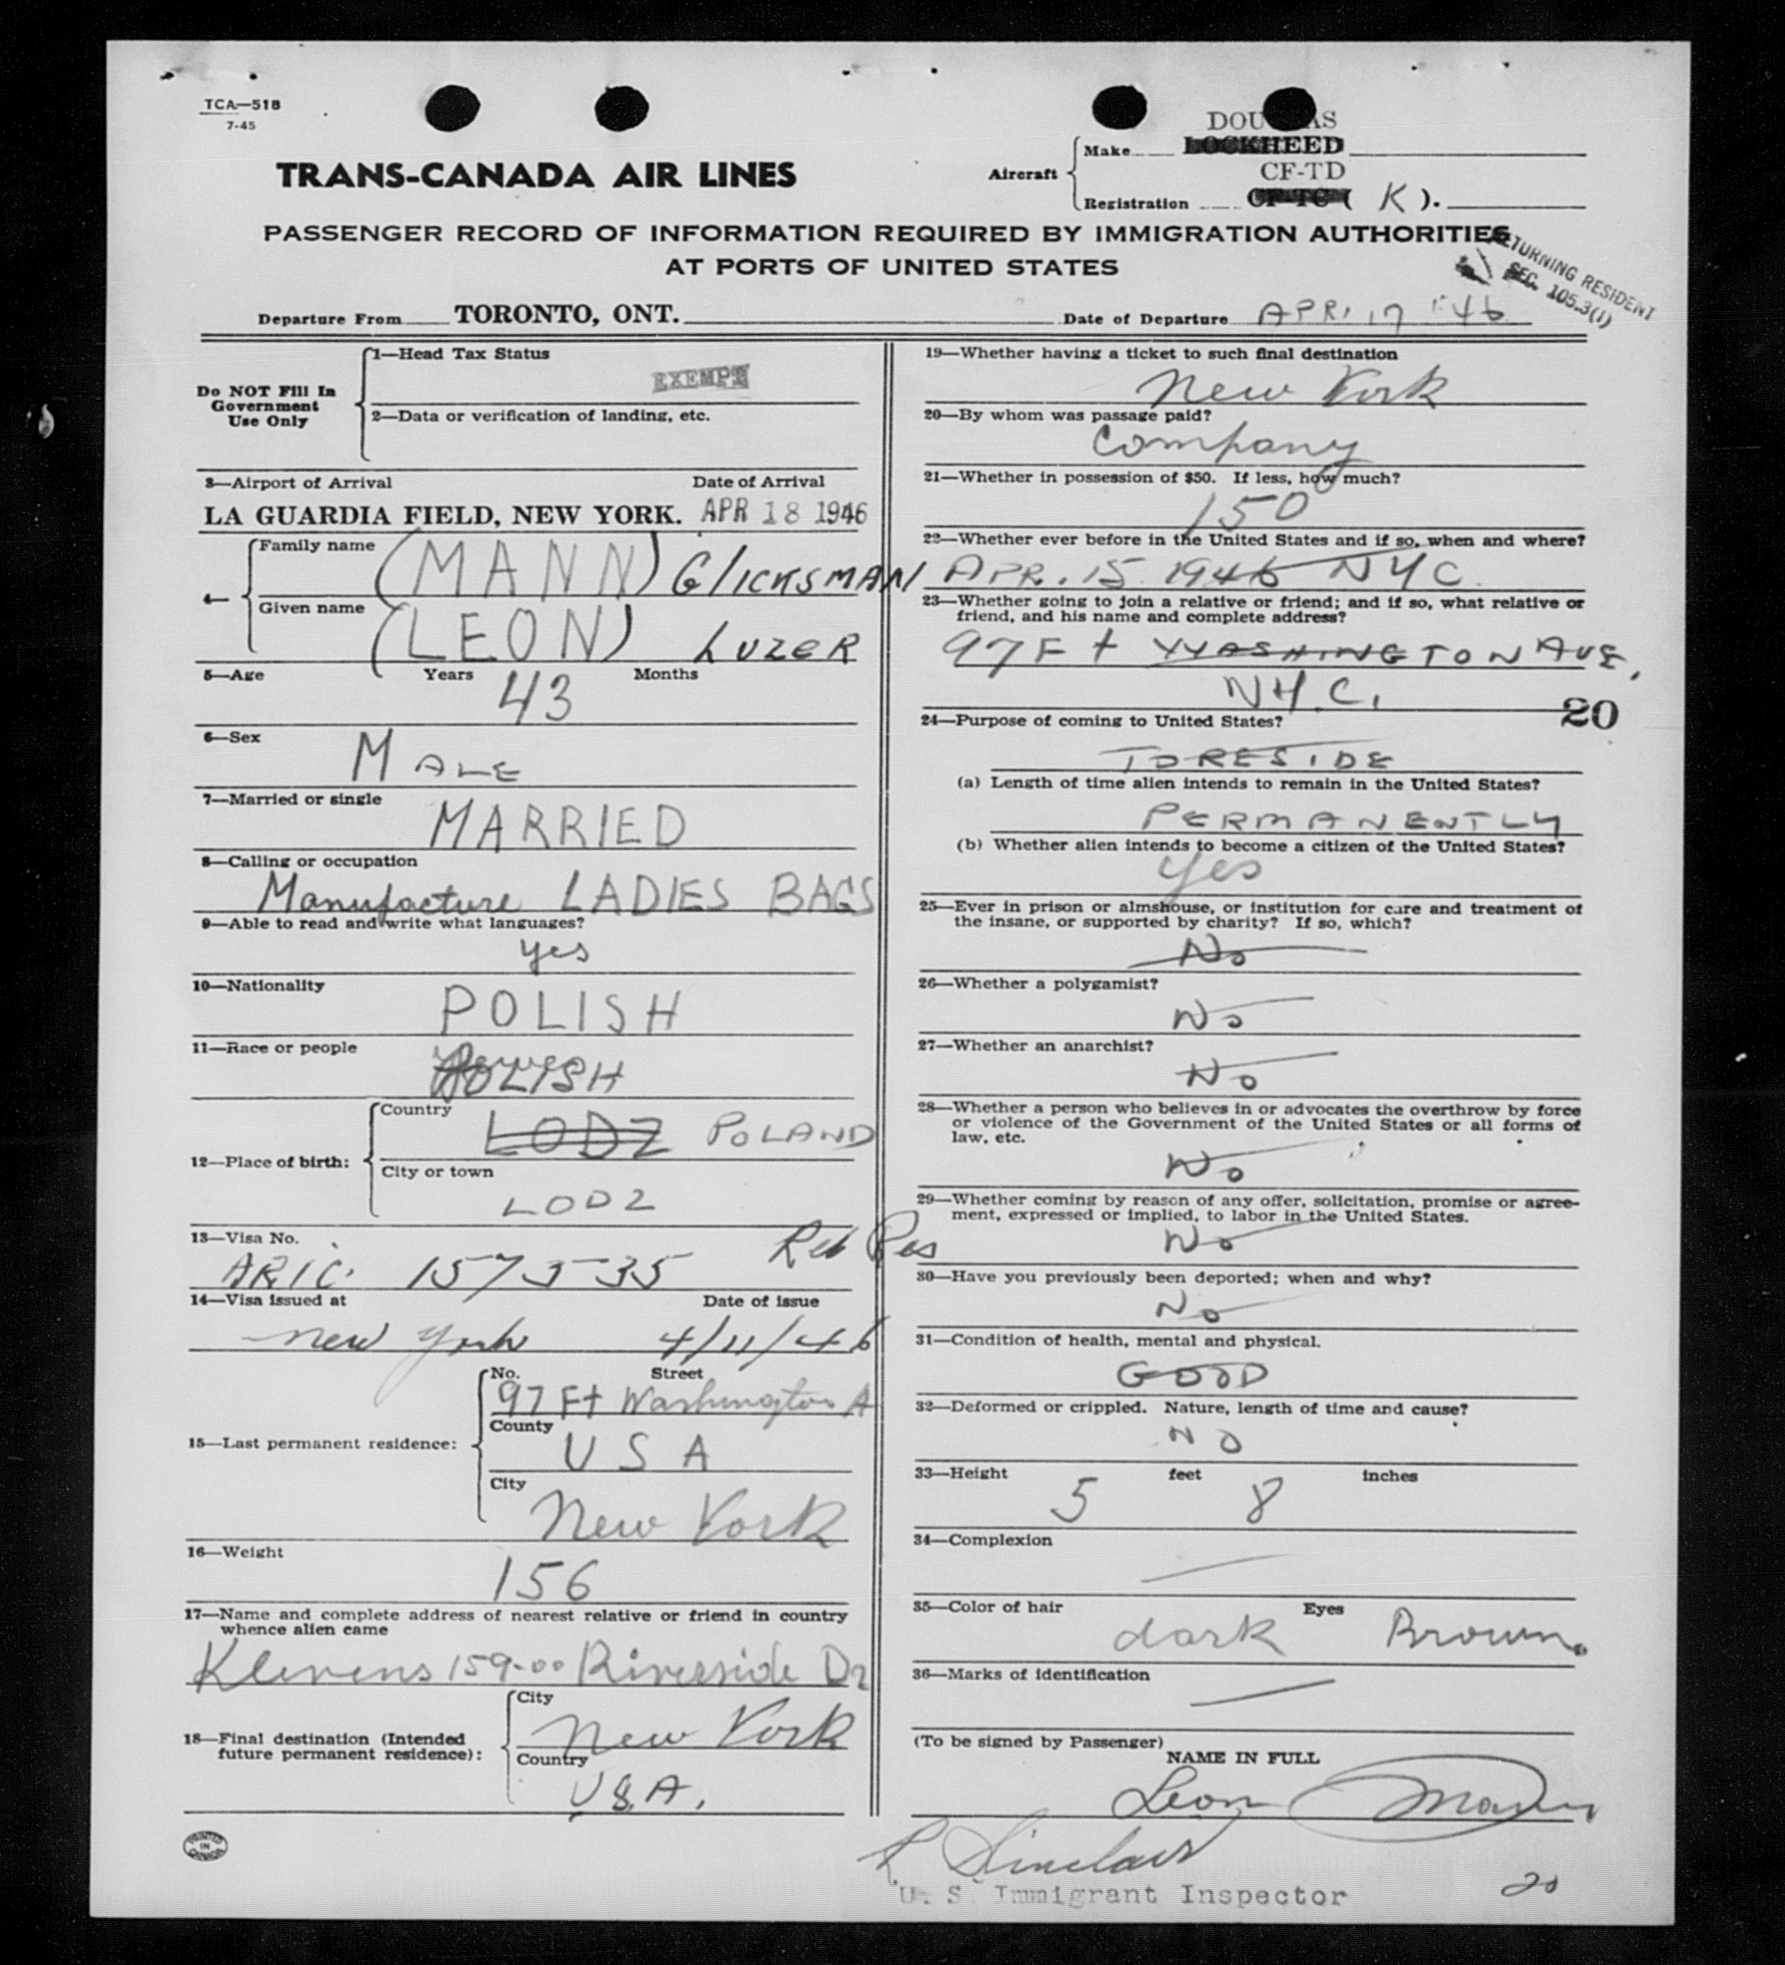 TCA—518
7-45
TRANS-CANADA AIR LINES
Aircraft
DOU AS
Make LOCKHEED
CF-TD
Registration CF-TC ( K ).
PASSENGER RECORD OF INFORMATION REQUIRED BY IMMIGRATION AUTHORITIES
AT PORTS OF UNITED STATES
RETURNING RESIDENT
SEC. 105.3(1)
Departure From TORONTO, ONT. Date of Departure APR. 17 '46
Do NOT Fill In
Government
Use Only
1—Head Tax Status
EXEMPT
2—Data or verification of landing, etc.
3—Airport of Arrival Date of Arrival
LA GUARDIA FIELD, NEW YORK. APR 18 1946
4—
Family name (MANN) GLICKSMAN
Given name (LEON) LUZER
5—Age Years 43 Months
6—Sex MALE
7—Married or single MARRIED
8—Calling or occupation
Manufacture LADIES BAGS
9—Able to read and write what languages?
yes
10—Nationality
POLISH
11—Race or people
POLISH
12—Place of birth:
Country LODZ POLAND
City or town
LODZ
13—Visa No.
ARIC. 1573535
14—Visa issued at Date of issue
New York 4/11/46
15—Last permanent residence:
No. Street
97 Ft Washington A
County
USA
City
New York
16—Weight
156
17—Name and complete address of nearest relative or friend in country
whence alien came
Klevens 159-00 Riverside Dr
18—Final destination (Intended
future permanent residence):
City
New York
Country
U.S.A.
PRINTED
IN
CANADA
19—Whether having a ticket to such final destination
New York
20—By whom was passage paid?
Company
21—Whether in possession of $50. If less, how much?
150
22—Whether ever before in the United States and if so, when and where?
APR. 15 1946 NYC.
23—Whether going to join a relative or friend; and if so, what relative or
friend, and his name and complete address?
97 Ft WASHINGTON AVE,
NYC. 20
24—Purpose of coming to United States?
TO RESIDE
(a) Length of time alien intends to remain in the United States?
PERMANENTLY
(b) Whether alien intends to become a citizen of the United States?
yes
25—Ever in prison or almshouse, or institution for care and treatment of
the insane, or supported by charity? If so, which?
No
26—Whether a polygamist?
No
27—Whether an anarchist?
No
28—Whether a person who believes in or advocates the overthrow by force
or violence of the Government of the United States or all forms of
law, etc.
No
29—Whether coming by reason of any offer, solicitation, promise or agree-
ment, expressed or implied, to labor in the United States.
No
30—Have you previously been deported; when and why?
No
31—Condition of health, mental and physical.
GOOD
32—Deformed or crippled. Nature, length of time and cause?
NO
33—Height 5 feet 8 inches
34—Complexion
35—Color of hair Eyes
dark Brown
36—Marks of identification
(To be signed by Passenger)
NAME IN FULL
Leon Mann
Sinclair
U. S. Immigrant Inspector
20